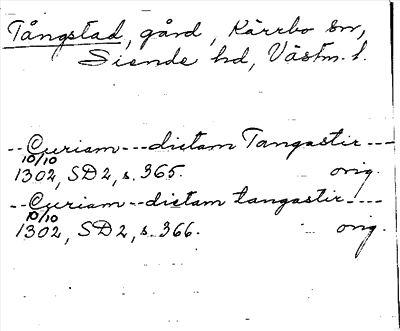 Tångstad, gård, Kärrbo sn,
Siende hd, Västm. l.
-- Curiam --- dictam Tangastir ---
10/10
1302, SD 2, s. 365. orig.
-- Curiam -- dictam tangastir ---
10/10
1302, SD 2, s. 366. orig.